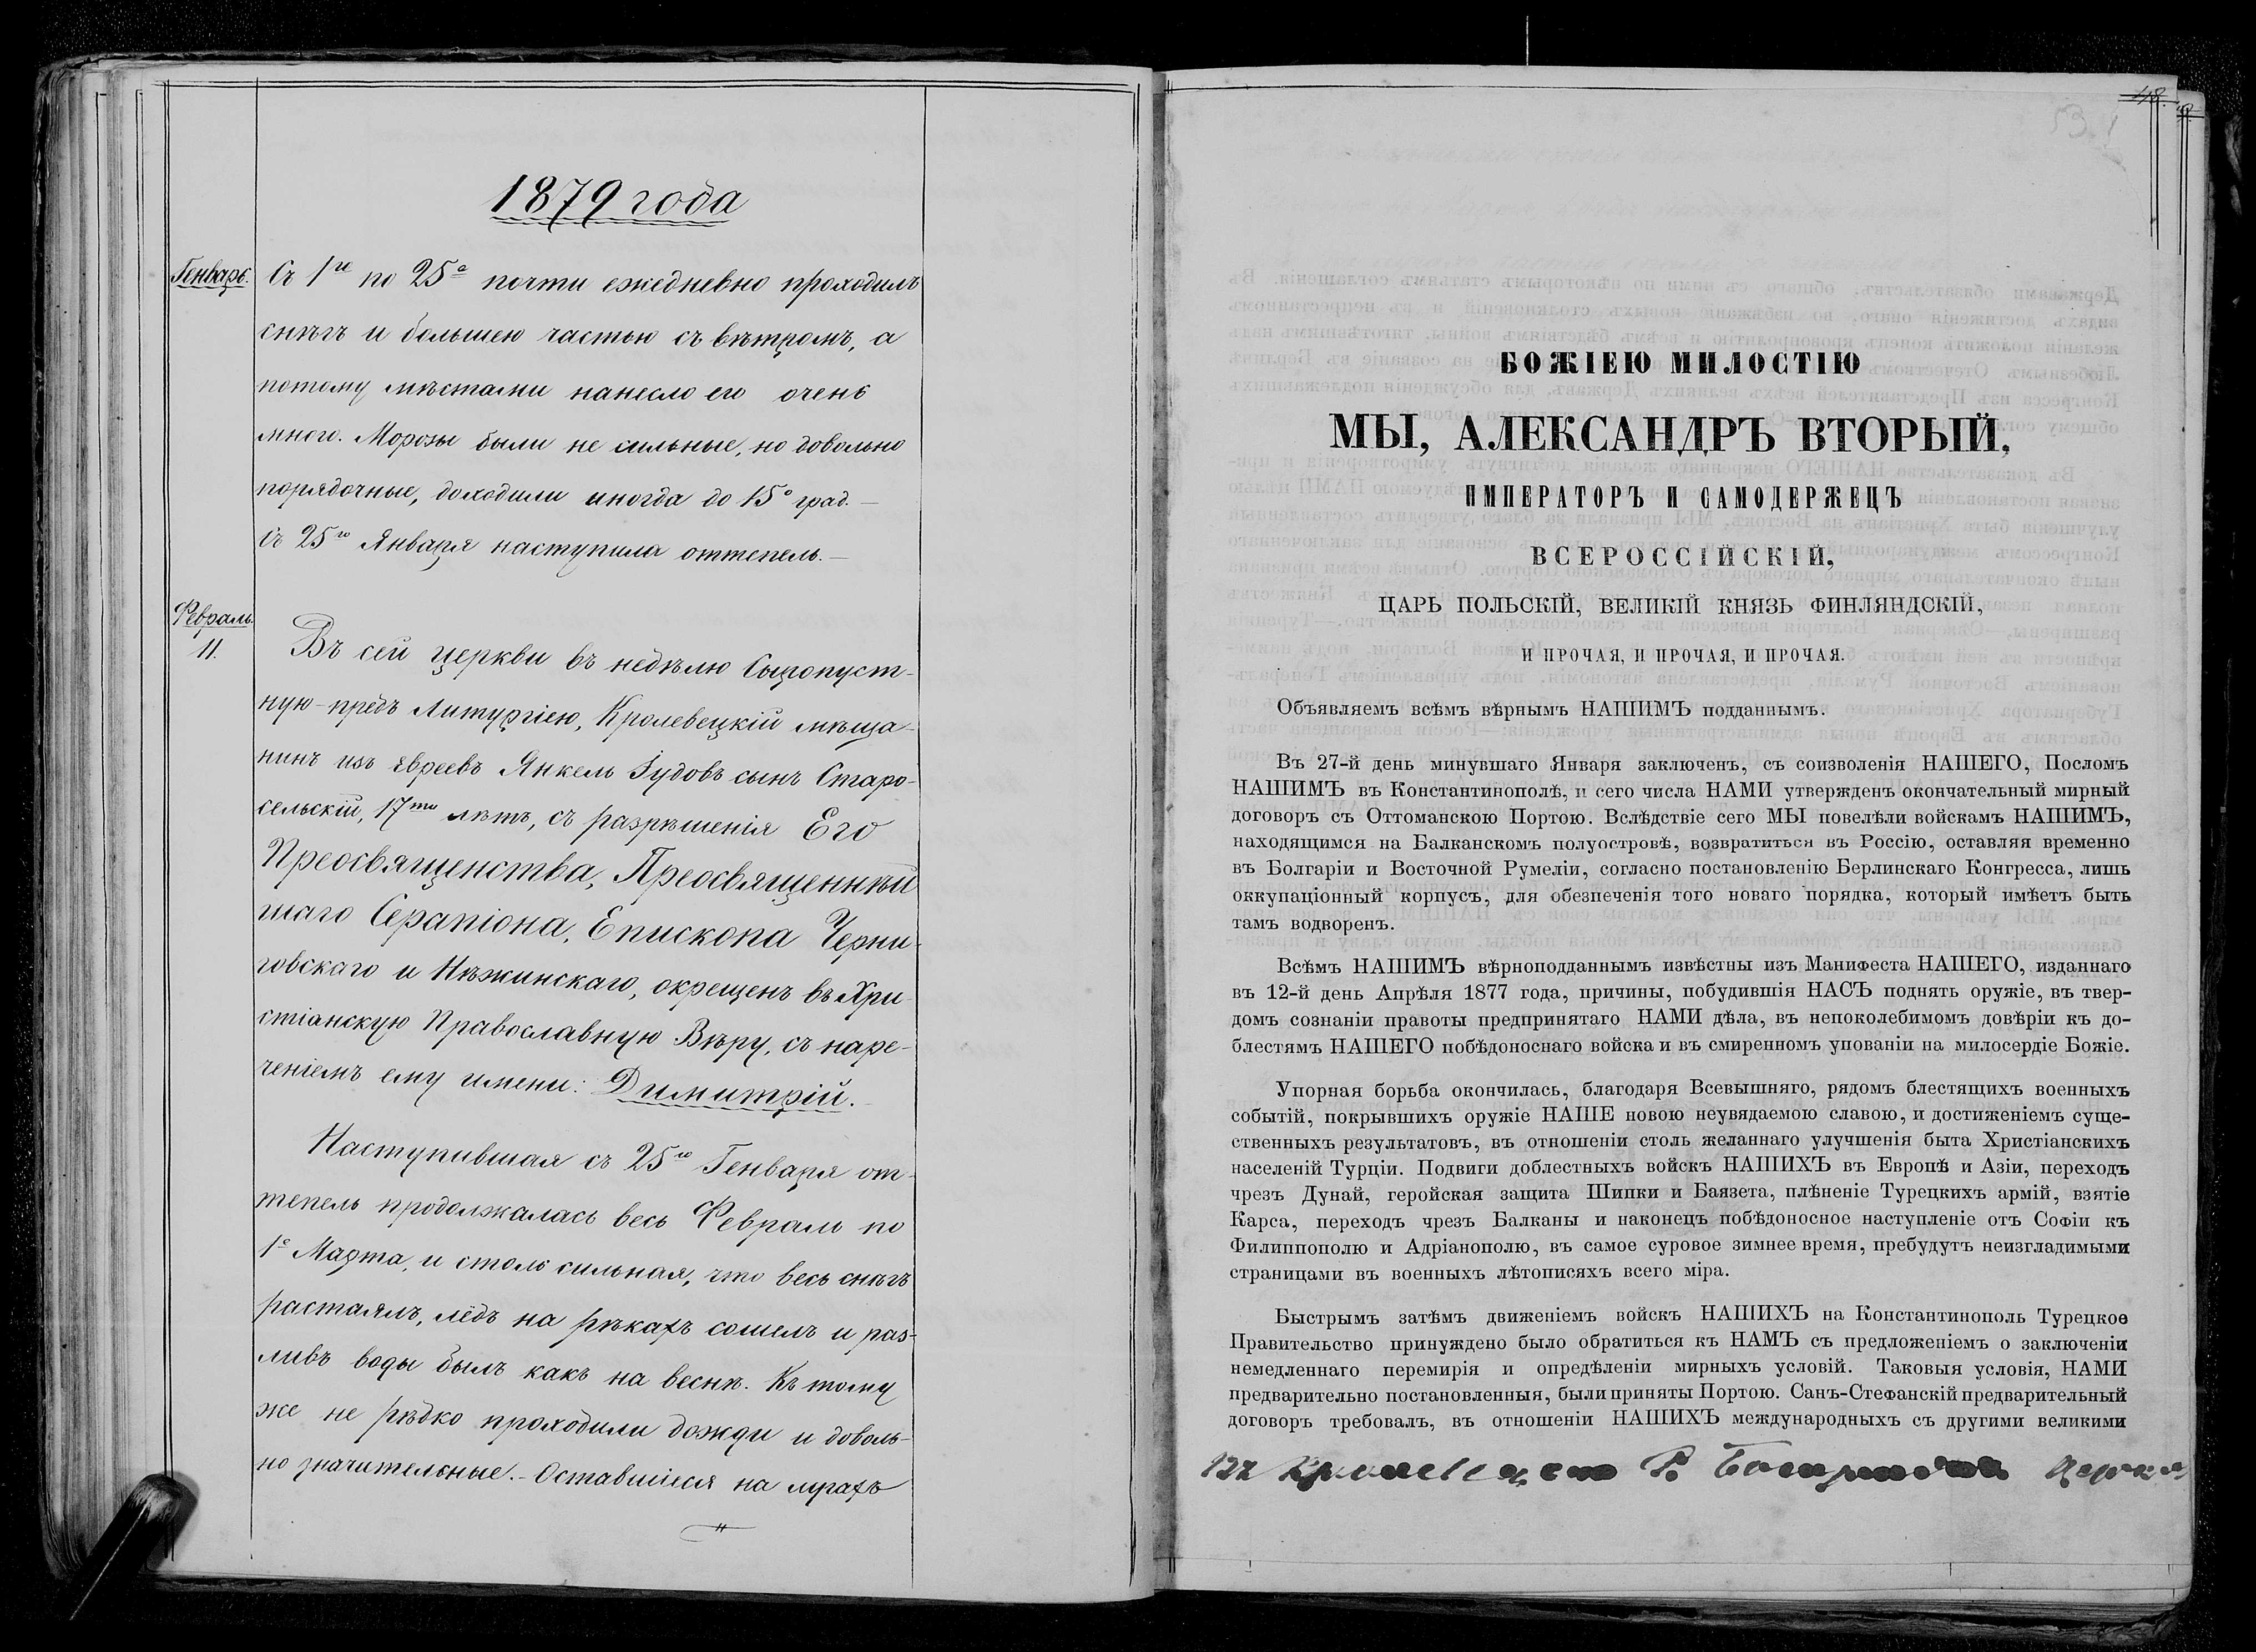 1879 года
Генварь.
Съ 1го по 25е почти ежедневно проходилъ
снѣгъ и большею частью съ вѣтромъ, а
потому мѣстами нанесло его очень
много. Морозы были не сильные, но довольно
порядочные, доходили иногда до 15° град. —
Съ 25го Января наступила оттепель. —
Февраль
11.
Въ сей церкви въ недѣлю Сыропуст-
ную – предъ Литургіею, Кролевецкій мѣща-
нинъ изъ евреевъ Янкель Іудовъ сынъ Старо-
сельскій, 17ти лѣтъ, съ разрѣшенія Его
Преосвященства, Преосвященнѣй
шаго Серапіона, Епископа Черни-
говскаго и Нѣжинскаго, окрещенъ въ Хри-
стіанскую Православную Вѣру, съ наре-
ченіемъ ему имени: Димитрій.
Наступившая съ 25го Генваря от-
тепель продолжалась весь Февраль по
1е Марта, и столь сильная, что весь снѣгъ
растаялъ, лёдъ на рѣкахъ сошелъ и раз-
ливъ воды былъ какъ на веснѣ. Къ тому
же не рѣдко проходили дожди и доволь-
но значительные. – Оставшіеся на лугахъ
53.
БОЖІЕЮ МИЛОСТІЮ
МЫ, АЛЕКСАНДРЪ ВТОРЫЙ,
ИМПЕРАТОРЪ И САМОДЕРЖЕЦЪ
ВСЕРОССІЙСКІЙ,
ЦАРЬ ПОЛЬСКІЙ, ВЕЛИКІЙ КНЯЗЬ ФИНЛЯНДСКІЙ,
И ПРОЧАЯ, И ПРОЧАЯ, И ПРОЧАЯ.
Объявляемъ всѣмъ вѣрнымъ НАШИМЪ подданнымъ.
Въ 27-й день минувшаго Января заключенъ, съ соизволенія НАШЕГО, Посломъ
НАШИМЪ въ Константинополѣ, и сего числа НАМИ утвержденъ окончательный мирный
договоръ съ Оттоманскою Портою. Вслѣдствіе сего МЫ повелѣли войскамъ НАШИМЪ,
находящимся на Балканскомъ полуостровѣ, возвратиться въ Россію, оставляя временно
въ Болгаріи и Восточной Румеліи, согласно постановленію Берлинскаго Конгресса, лишь
оккупаціонный корпусъ, для обезпеченія того новаго порядка, который имѣетъ быть
тамъ водворенъ.
Всѣмъ НАШИМЪ вѣрноподданнымъ извѣстны изъ Манифеста НАШЕГО, изданнаго
въ 12-й день Апрѣля 1877 года, причины, побудившія НАСЪ поднять оружіе, въ твер-
домъ сознаніи правоты предпринятаго НАМИ дѣла, въ непоколебимомъ довѣріи къ до-
блестямъ НАШЕГО побѣдоноснаго войска и въ смиренномъ упованіи на милосердіе Божіе.
Упорная борьба окончилась, благодаря Всевышняго, рядомъ блестящихъ военныхъ
событій, покрывшихъ оружіе НАШЕ новою неувядаемою славою, и достиженіемъ суще-
ственныхъ результатовъ, въ отношеніи столь желаннаго улучшенія быта Христіанскихъ
населеній Турціи. Подвиги доблестныхъ войскъ НАШИХЪ въ Европѣ и Азіи, переходъ
чрезъ Дунай, геройская защита Шипки и Баязета, плѣненіе Турецкихъ армій, взятіе
Карса, переходъ чрезъ Балканы и наконецъ побѣдоносное наступленіе отъ Софіи къ
Филиппополю и Адріанополю, въ самое суровое зимнее время, пребудутъ неизгладимыми
страницами въ военныхъ лѣтописяхъ всего міра.
Быстрымъ затѣмъ движеніемъ войскъ НАШИХЪ на Константинополь Турецкое
Правительство принуждено было обратиться къ НАМЪ съ предложеніемъ о заключеніи
немедленнаго перемирія и опредѣленіи мирныхъ условій. Таковыя условія, НАМИ
предварительно постановленныя, были приняты Портою. Санъ-Стефанскій предварительный
договоръ требовалъ, въ отношеніи НАШИХЪ международныхъ съ другими великими